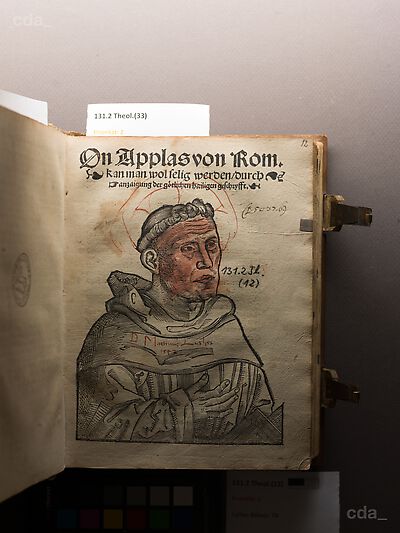 cda_
131.2 Theol.(33)
12
On Applas von Rom.
kan man wol selig werden/durch
anzaigung der götlichen hailigen geschryfft.
131.2 Th.
(12)
D Martinus Luter
131.2 Theol.(33)
cda_